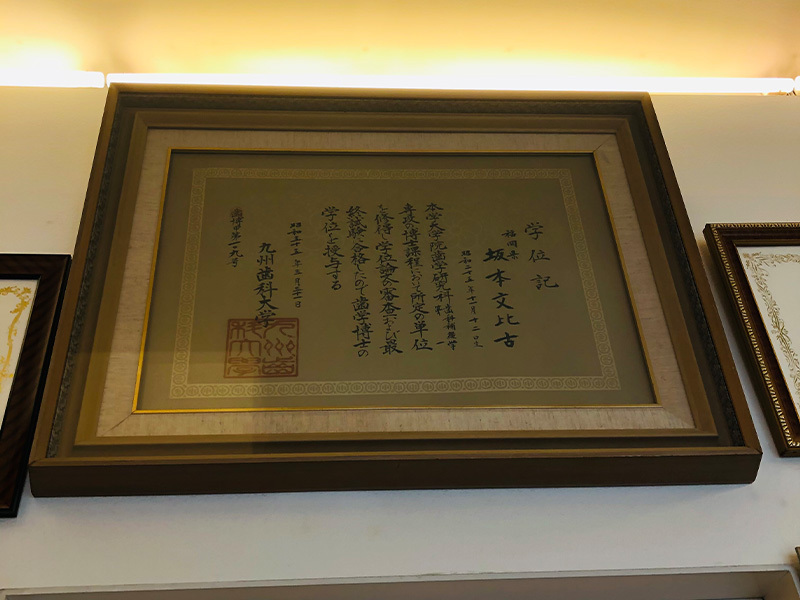 学位記
福岡県
坂本文比古
昭和二十五年十一月十二日生
本学大学院歯学研究科歯科補綴学
専攻博士課程において所定の単位
を修得し学位論文の審査および最
終試験に合格したので歯学博士の
学位を授与する
昭和五十五年三月二十日
九州歯科大学
歯博甲第一九号